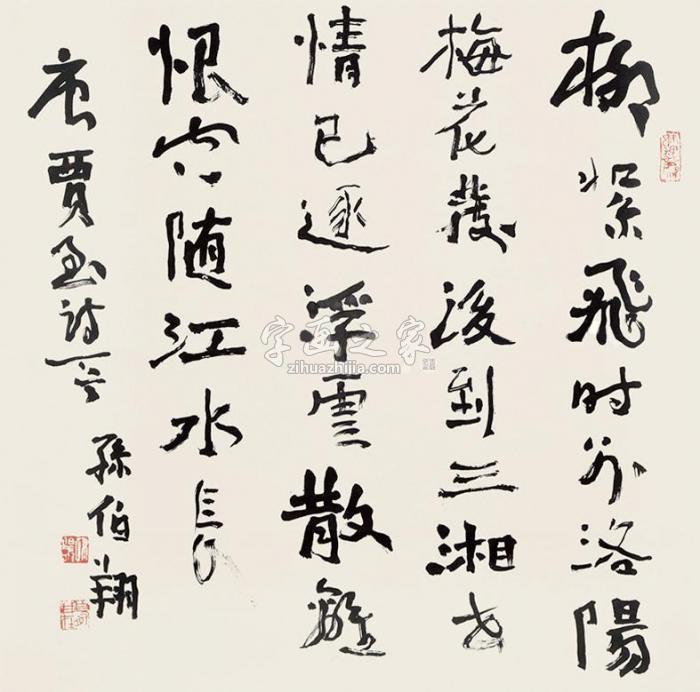 柳絮飛时别洛陽
梅花發後到三湘世
情已逐浮雲散離
恨空随江水長
唐賈至詩一首
孫伯翔
字画之家
zihuazhijia.com